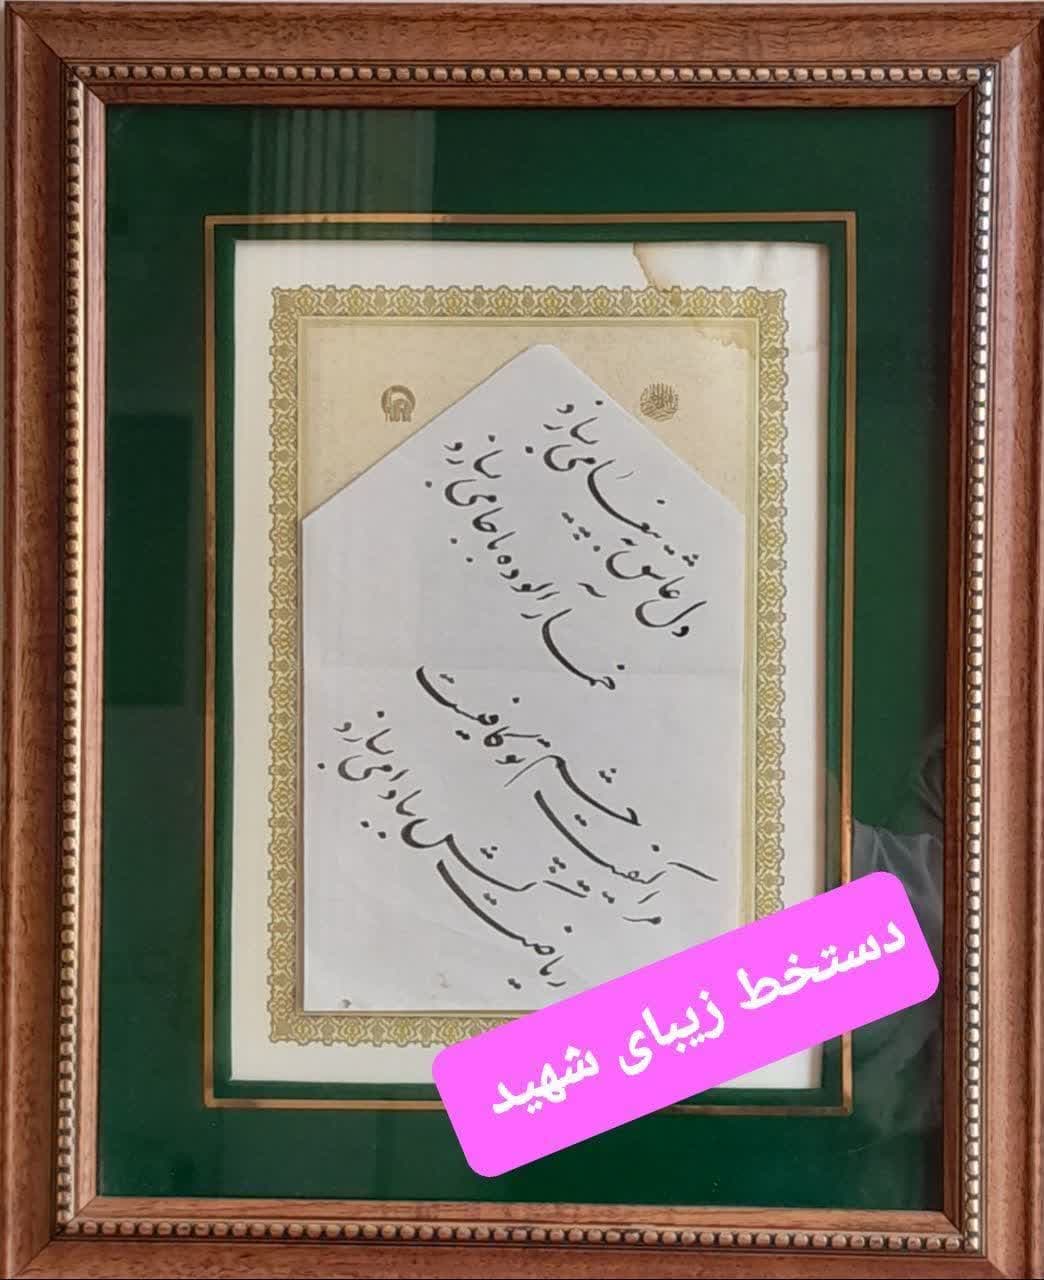 دل عاشق به پیغامی بسازد
خمار آلوده با جامی بسازد
مرا کیفیت چشم تو کافیست
ریاضت کش ببادامی بسازد
دستخط زیبای شهید